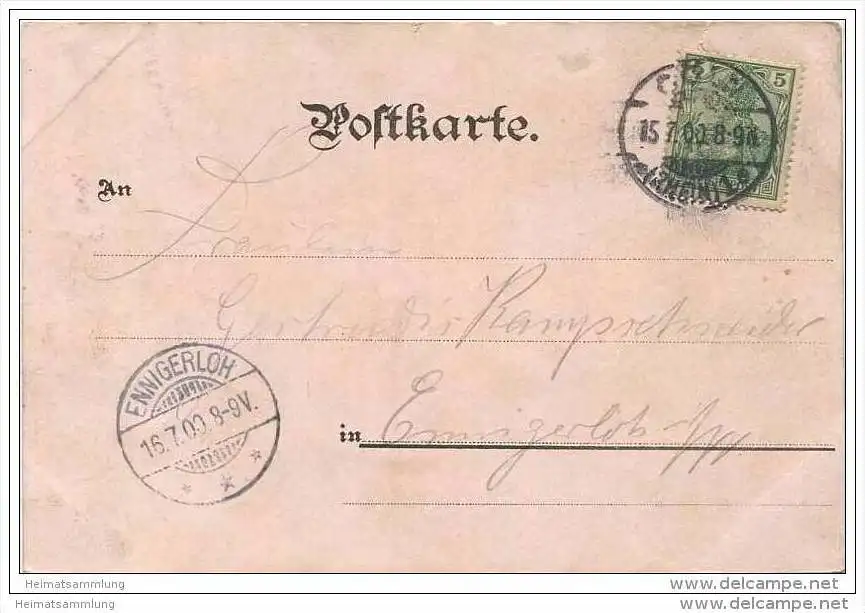 Postkarte.
5
15.7.00.8-9N
An
Fräulein
Gertrudis Kampschneider
ENNIGERLOH
16.7.00.8-9V.
in Ennigerloh
Heimatsammlung
delcampe.net
Heimatsammlung
delcampe.net